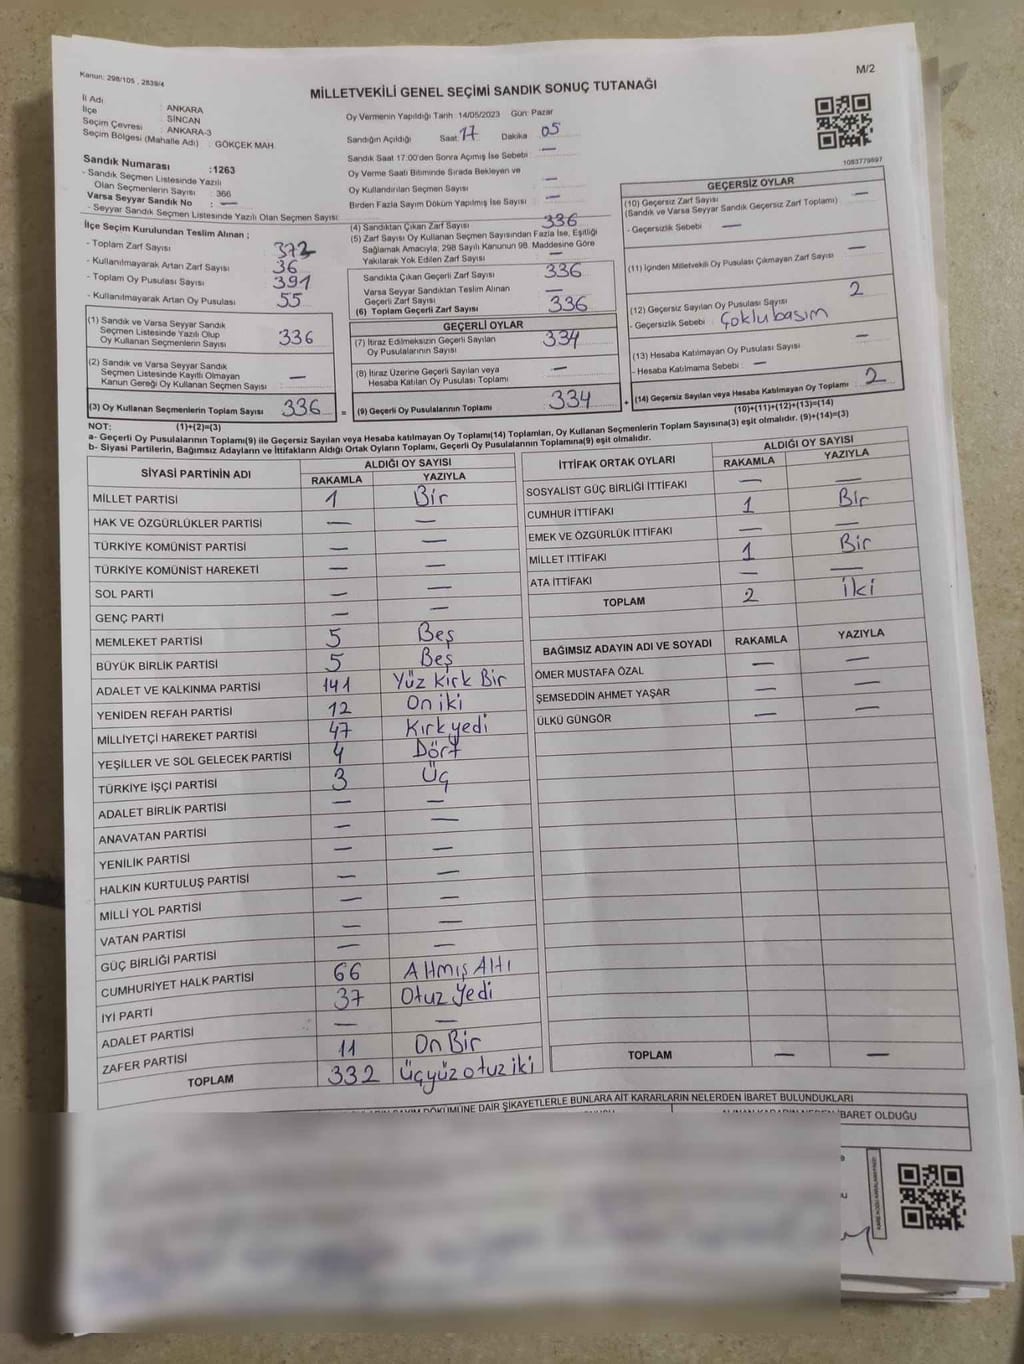 Kanun: 298/105, 2839/4
M/2
MİLLETVEKİLİ GENEL SEÇİMİ SANDIK SONUÇ TUTANAĞI
İl Adı : ANKARA
İlçe : SİNCAN
Seçim Çevresi : ANKARA-3
Seçim Bölgesi (Mahalle Adı) : GÖKÇEK MAH.
Oy Vermenin Yapıldığı Tarih :14/05/2023 Gün: Pazar
Sandığın Açıldığı Saat: 17 Dakika 05
Sandık Saat 17:00'den Sonra Açımış İse Sebebi : —
Oy Verme Saati Bitiminde Sırada Bekleyen ve
Oy Kullandırılan Seçmen Sayısı : —
Birden Fazla Sayım Döküm Yapılmış İse Sayısı : —
1083779897
Sandık Numarası :1263
- Sandık Seçmen Listesinde Yazılı
Olan Seçmenlerin Sayısı : 366
Varsa Seyyar Sandık No : —
- Seyyar Sandık Seçmen Listesinde Yazılı Olan Seçmen Sayısı:
İlçe Seçim Kurulundan Teslim Alınan ;
- Toplam Zarf Sayısı 372
- Kullanılmayarak Artan Zarf Sayısı : 36
- Toplam Oy Pusulası Sayısı : 391
- Kullanılmayarak Artan Oy Pusulası : 55
(1) Sandık ve Varsa Seyyar Sandık
Seçmen Listesinde Yazılı Olup
Oy Kullanan Seçmenlerin Sayısı : 336
(2) Sandık ve Varsa Seyyar Sandık
Seçmen Listesinde Kayıtlı Olmayan
Kanun Gereği Oy Kullanan Seçmen Sayısı : —
(3) Oy Kullanan Seçmenlerin Toplam Sayısı 336
(4) Sandıktan Çıkan Zarf Sayısı : 336
(5) Zarf Sayısı Oy Kullanan Seçmen Sayısından Fazla İse, Eşitliği
Sağlamak Amacıyla, 298 Sayılı Kanunun 98. Maddesine Göre
Yakılarak Yok Edilen Zarf Sayısı : —
Sandıkta Çıkan Geçerli Zarf Sayısı : 336
Varsa Seyyar Sandıktan Teslim Alınan
Geçerli Zarf Sayısı : —
(6) Toplam Geçerli Zarf Sayısı : 336
GEÇERLİ OYLAR
(7) İtiraz Edilmeksizin Geçerli Sayılan
Oy Pusulalarının Sayısı : 334
(8) İtiraz Üzerine Geçerli Sayılan veya
Hesaba Katılan Oy Pusulası Toplamı : —
= (9) Geçerli Oy Pusulalarının Toplamı : 334
GEÇERSİZ OYLAR
(10) Geçersiz Zarf Sayısı : —
(Sandık ve Varsa Seyyar Sandık Geçersiz Zarf Toplamı)
- Geçersizlik Sebebi : —
(11) İçinden Milletvekili Oy Pusulası Çıkmayan Zarf Sayısı : —
(12) Geçersiz Sayılan Oy Pusulası Sayısı : 2
- Geçersizlik Sebebi : Çoklu basım
(13) Hesaba Katılmayan Oy Pusulası Sayısı : —
- Hesaba Katılmama Sebebi : —
+ (14) Geçersiz Sayılan veya Hesaba Katılmayan Oy Toplamı : 2
NOT: (1)+(2)=(3)
(10)+(11)+(12)+(13)=(14)
a- Geçerli Oy Pusulalarının Toplamı(9) ile Geçersiz Sayılan veya Hesaba katılmayan Oy Toplamı(14) Toplamları, Oy Kullanan Seçmenlerin Toplam Sayısına(3) eşit olmalıdır. (9)+(14)=(3)
b- Siyasi Partilerin, Bağımsız Adayların ve İttifakların Aldığı Ortak Oyların Toplamı, Geçerli Oy Pusulalarının Toplamına(9) eşit olmalıdır.
SİYASİ PARTİNİN ADI ALDIĞI OY SAYISI
RAKAMLA YAZIYLA
MİLLET PARTİSİ 1 Bir
HAK VE ÖZGÜRLÜKLER PARTİSİ — —
TÜRKİYE KOMÜNİST PARTİSİ — —
TÜRKİYE KOMÜNİST HAREKETİ — —
SOL PARTİ — —
GENÇ PARTİ — —
MEMLEKET PARTİSİ 5 Beş
BÜYÜK BİRLİK PARTİSİ 5 Beş
ADALET VE KALKINMA PARTİSİ 141 Yüz Kırk Bir
YENİDEN REFAH PARTİSİ 12 On iki
MİLLİYETÇİ HAREKET PARTİSİ 47 Kırk yedi
YEŞİLLER VE SOL GELECEK PARTİSİ 4 Dört
TÜRKİYE İŞÇİ PARTİSİ 3 Üç
ADALET BİRLİK PARTİSİ — —
ANAVATAN PARTİSİ — —
YENİLİK PARTİSİ — —
HALKIN KURTULUŞ PARTİSİ — —
MİLLİ YOL PARTİSİ — —
VATAN PARTİSİ — —
GÜÇ BİRLİĞİ PARTİSİ — —
CUMHURİYET HALK PARTİSİ 66 Altmış Altı
İYİ PARTİ 37 Otuz Yedi
ADALET PARTİSİ — —
ZAFER PARTİSİ 11 On Bir
TOPLAM 332 Üçyüz otuz iki
İTTİFAK ORTAK OYLARI ALDIĞI OY SAYISI
RAKAMLA YAZIYLA
SOSYALİST GÜÇ BİRLİĞİ İTTİFAKI — —
CUMHUR İTTİFAKI 1 Bir
EMEK VE ÖZGÜRLÜK İTTİFAKI — —
MİLLET İTTİFAKI 1 Bir
ATA İTTİFAKI — —
TOPLAM 2 İki
BAĞIMSIZ ADAYIN ADI VE SOYADI RAKAMLA YAZIYLA
ÖMER MUSTAFA ÖZAL — —
ŞEMSEDDİN AHMET YAŞAR — —
ÜLKÜ GÜNGÖR — —
TOPLAM — —
DÖKÜMÜNE DAİR ŞİKAYETLERLE BUNLARA AİT KARARLARIN NELERDEN İBARET BULUNDUKLARI
İBARET OLDUĞU